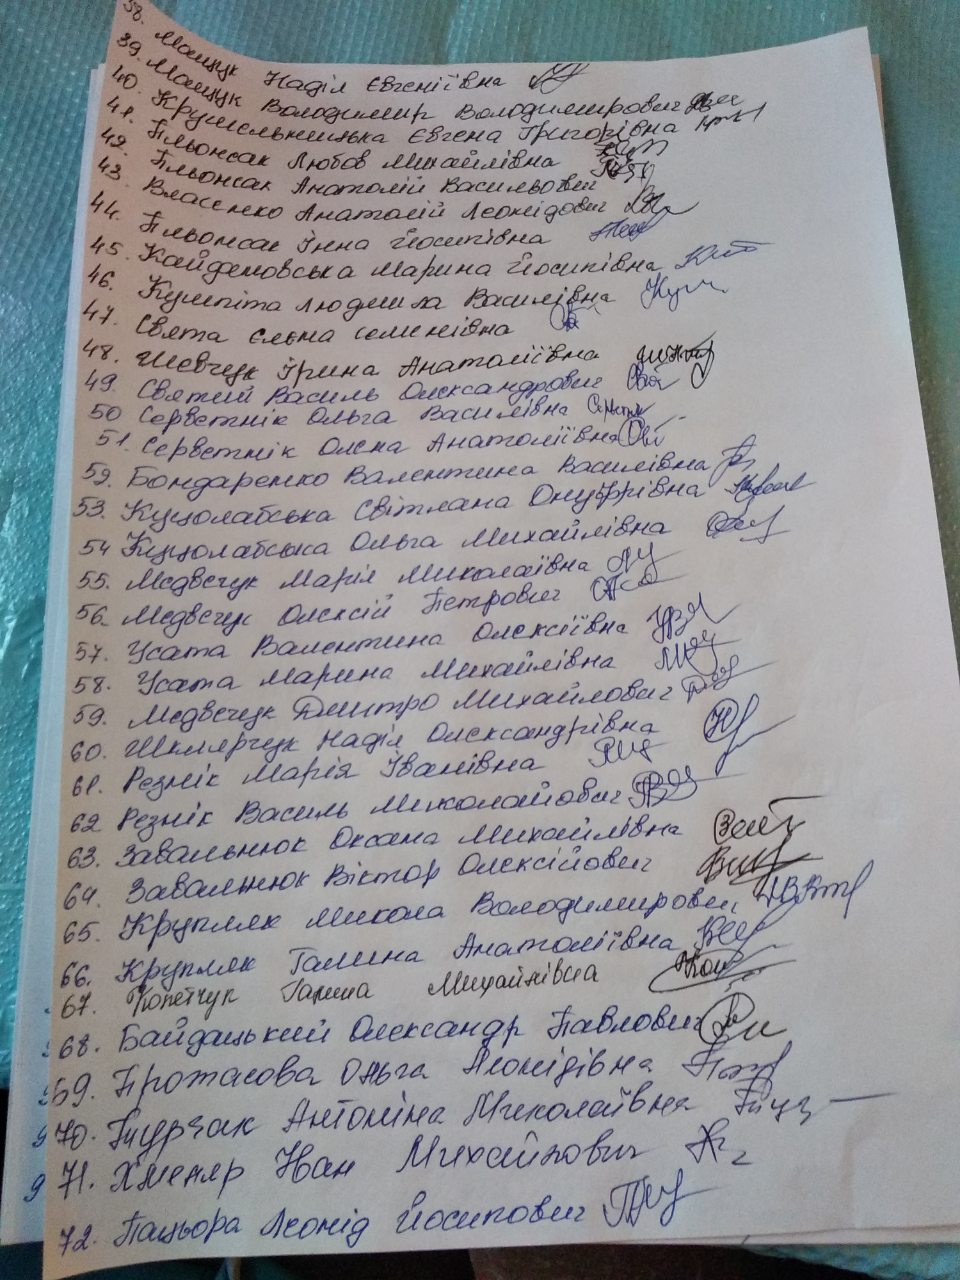 38. Мащук Надія Євгеніївна
39. Мащук Володимир Володимирович
40. Крушельницька Євгена Григорівна
41. Пльонсак Любов Михайлівна
42. Пльонсак Анатолій Васильович
43. Власенко Анатолій Леонідович
44. Пльонсак Інна Йосипівна
45. Кайдановська Марина Йосипівна
46. Кумпіта Людмила Василівна
47. Свята Єлєна Семенівна
48. Шевчук Ірина Анатоліївна
49. Святий Василь Олександрович
50 Серветнік Ольга Василівна
51. Серветнік Олена Анатоліївна
52. Бондаренко Валентина Василівна
53. Куцолабська Світлана Онуфрівна
54 Куцолабська Ольга Михайлівна
55. Медвечук Марія Миколаївна
56. Медвечук Олексій Петрович
57. Усата Валентина Олексіївна
58. Усата Марина Михайлівна
59. Медвечук Дмитро Михайлович
60. Шклярчук Надія Олександрівна
61. Резнік Марія Іванівна
62 Резнік Василь Миколайович
63. Завальнюк Оксана Михайлівна
64. Завальнюк Віктор Олексійович
65. Крупляк Микола Володимирович
66. Крупляк Галина Анатоліївна
67. Копетчук Галина Михайлівна
68. Байдацький Олександр Павлович
69. Протасова Ольга Леонідівна
70. Антоніна Миколаївна
71. Хменяр Іван Михайлович
72. Пацьора Леонід Йосипович